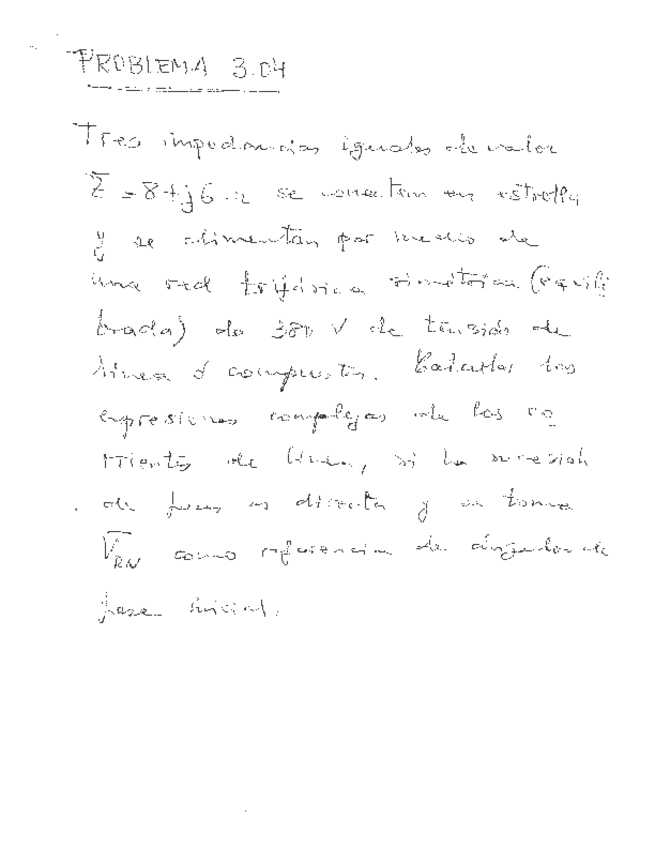 PROBLEMA 3.04
Tres impedancias iguales de valor
Z̄ = 8+j6 Ω se conectan en estrella
y se alimentan por medio de
una red trifásica simétrica (equili
brada) de 380 V de tensión de
línea ó compuesta. Calcular las
expresiones complejas de las co
rrientes de línea, si la sucesión
de fases es directa y se toma
V̄RN como referencia de ángulos de
fase inicial.